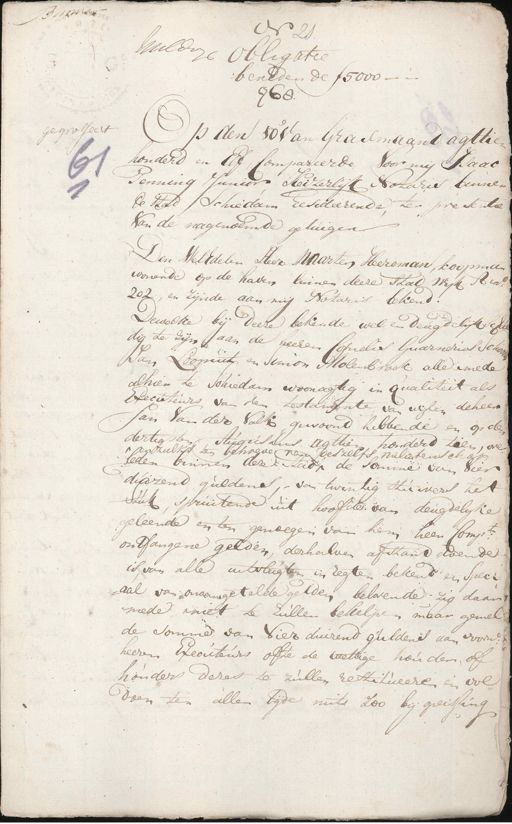 No 21
Obligatie
beneden de f5000 —
968
gegrosseert
61
1
Op den 10e Van Grasmaand agttien
honderd en Elf Compareerde Voor mij Isaac
Penning Junior Keizerlijk Notaris binnen
de Stad Schiedam resideerende, ter presentie
Van de nagenoemde getuigen
Den Weledelen Heer Maarten Heereman, koopman
woonende op de haven binnen deese Stad Wijk
202, en zijnde aan mij Notaris bekend.
Dewelke bij deese bekende wel en deugdelijk schul
dig te zijn aan de heeren Cornelis
Van en Simon Molenbroek alle mede
alhier te Schiedam woonagtig in qualiteit als
Executeurs van den testamente van wijlen de heer
Jan Van der Valk gewoond hebbende en op den
dertigsten Augustus agttien honderd tien, over
leden binnen deese Stad de somme van Vier
duizend guldens, van twintig stuivers het
stuk spruitende uit hoofde van deugdelijke
geleende en ten genoegen van hem heer Compt.
ontfangene gelden, derhalven afstand doende
is, van alle uitvlugten in regten bekend en speci
aal van onaangetelde gelden belovende zig daar
mede niet te zullen behelpen maar gemel
de somme van Vier duizend guldens aan voorn.
heeren Executeurs ofte de wettige houder of
houders deses te zullen restitueeren en vol
doen ten allen tijde mits zoo bij opeissing